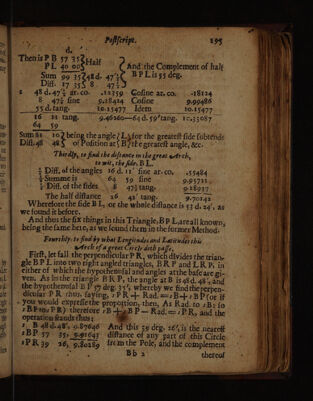 Postscript. 195
d.
Then is P B 57 35 } Half } And the Complement of half
P L 40 00 } B P L is 55 deg.
Sum 99 35 } 48 d. 47'½
Diff. 17 35 } 8 47½
s 48 d. 47½ ar. co. .12359 Cosine ar. co. .18124
8 47½ sine 9.18424 Cosine 9.99486
55 d. tang. 10.15477 Idem 10.15477
16 21 tang. 9.46260—64 d. 59' tang. 10.33087
64 59
Sum 81 20 } being the angle { L } for the greatest side subtends
Diff. 48 48 } of Position at { B } the greatest angle, &c.
Thirdly, to find the distance in the great Arch,
to wit, the side, B L.
½ Diff. of the angles 16 d. 21' sine ar. co. .55484
½ Summe is 64 59 sine 9.95721
½ Diff. of the sides 8 47½ tang. 9.18937
The half distance 26 42' tang. 9.70142
Wherefore the side B L, or the whole distance is 53 d. 24', as
we found it before.
And thus the six things in this Triangle, B P L, are all known,
being the same here, as we found them in the former Method.
Fourthly, to find by what Longitudes and Latitudes this
Arch of a great Circle doth pass.
First, let fall the perpendicular P R, which divides the trian-
gle B P L into two right angled triangles, B R P and L R P, in
either of which the hypothenusal and angles at the base are gi-
ven. As in the triangle B R P, the angle at B is 48 d. 48', and
the hypothenusal B P 57 deg. 35', whereby we find the perpen-
dicular P R thus, saying, s P R + Rad. = s B + s B P (or if
you would express the proportion, then, As Rad. to s B : so
s B P to s P R) therefore s B + s B P — Rad. = s P R, and the
operation stands thus;
s B 48 d. 48', 9.87646 And this 39 deg. 26', is the nearest
s B P 57 35, 9.92643 distance of any part of this Circle
s P R 39 26, 9.80289 from the Pole, and the complement
B b 2 thereof